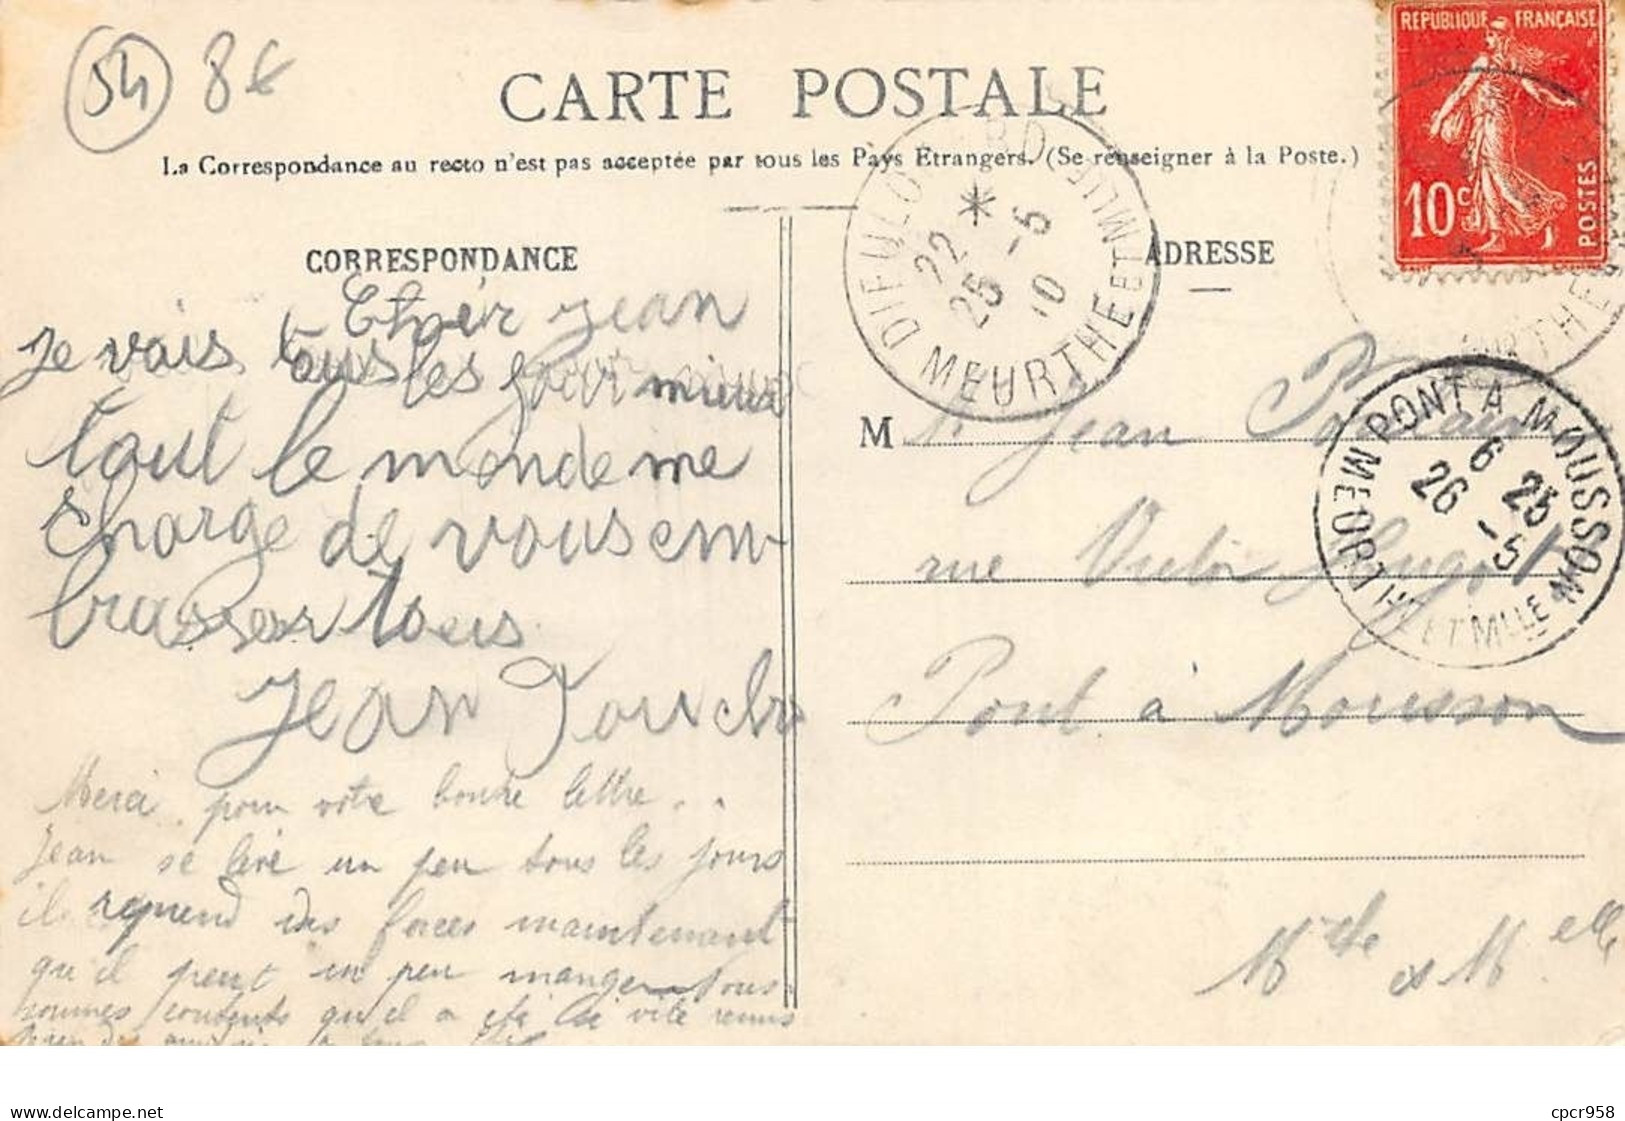 54 8€
CARTE POSTALE
La Correspondance au recto n'est pas acceptée par tous les Pays Etrangers. (Se renseigner à la Poste.)
REPUBLIQUE FRANÇAISE
10c
POSTES
DIEULOUARD
22 *
25 -5
10
MEURTHE ET M
CORRESPONDANCE
ADRESSE
Cher Jean
je vais tous les jour mieux
tout le monde me
charge de vous em-
brasser tous
Jean
Merci pour votre bonne lettre..
Jean se lève un peu tous les jours
il reprend des forces maintenant
qu'il peut un peu manger Nous
sommes contents qu'il a été si vite remis
M Jean
rue Victor Hugo
Pont à Mousson
PONT A MOUSSON
6 25
26 -5
MEURTHE ET MLLE
M et Melle
www.delcampe.net
cpcr958